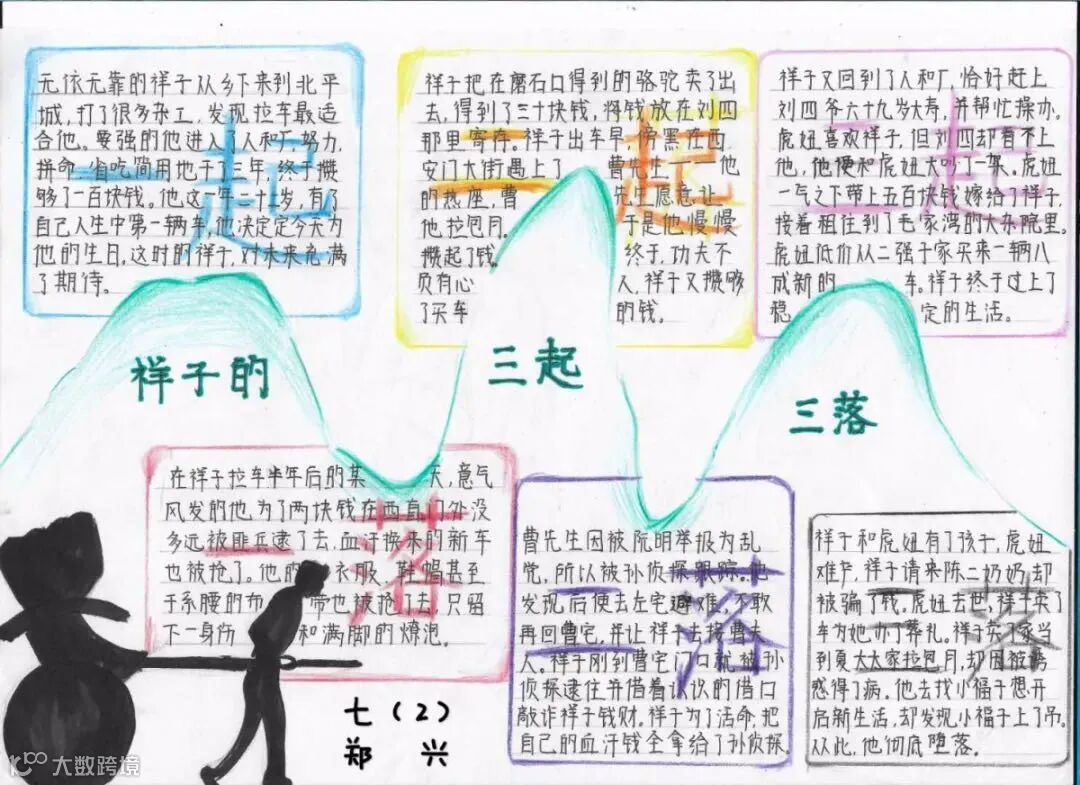 无依无靠的祥子从乡下来到北平
城,打了很多杂工,发现拉车最适
合他。要强的他进入了人和厂,努力,
拼命,省吃简用地干了三年,终于攒
够了一百块钱。他这一年二十二岁,有了
自己人生中第一辆车,他决定定今天为
他的生日,这时的祥子,对未来充满
了期待。
一起
祥子把在磨石口得到的骆驼卖了出
去,得到了三十块钱,将钱放在刘四
那里寄存。祥子出车早,傍黑在西
安门大街遇上了曹先生 他
的热座,曹先生愿意让
他拉包月。于是他慢慢
攒起了钱。终于,功夫不
负有心人,祥子又攒够
了买车的钱。
二起
祥子又回到了人和厂,恰好赶上
刘四爷六十九岁大寿,并帮忙操办。
虎妞喜欢祥子,但刘四却看不上
他,他便和虎妞大吵了一架。虎妞
一气之下带上五百块钱嫁给了祥子,
接着租住到了毛家湾的大杂院里。
虎妞低价从二强子家买来一辆八
成新的车。祥子终于过上了
稳定的生活。
三起
祥子的
三起
三落
在祥子拉车半年后的某天,意气
风发的他为了两块钱在西直门外没
多远被匪兵逮了去,血汗换来的新车
也被抢了。他的衣服、鞋帽甚至
于系腰的布带也被抢了去,只留
下一身伤和满脚的燎泡。
一落
曹先生因被阮明举报为乱
党,所以被孙侦探跟踪。他
发现后便去左宅避难,不敢
再回曹宅,并让祥子去接曹太
人。祥子刚到曹宅门口就被孙
侦探逮住并借着认识的借口
敲诈祥子钱财。祥子为了活命,把
自己的血汗钱全拿给了孙侦探。
二落
祥子和虎妞有了孩子,虎妞
难产,祥子请来陈二奶奶,却
被骗了钱。虎妞去世,祥子卖了
车为她办了葬礼。祥子卖了家当
到夏太太家拉包月,却因被诱
惑得了病。他去找小福子想开
启新生活,却发现小福子上了吊。
从此,他彻底堕落。
三落
七(2)
郑 兴
大数跨境